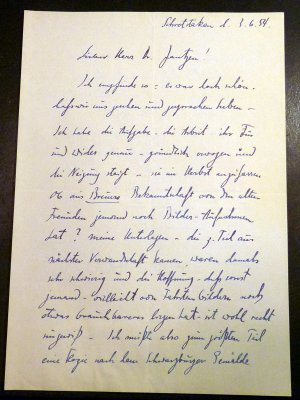 d. 3.6.54.
Lieber Herr Dr. Jantzen!
Ich empfinde so – es war doch schön,
daß wir uns gesehen und gesprochen haben –
Ich habe die Aufgabe – die Arbeit – ihr Für
und Wider genau – gründlich erwogen und
die Neigung steigt – sie im Herbst anzufassen
Ob aus Brünns Bekanntschaft von den alten
Freunden jemand noch Bilder-Aufnahmen
hat? meine Unterlagen – die z. Teil aus
nächster Verwandtschaft kamen waren damals
sehr schwierig und die Hoffnung – daß sonst
jemand – vielleicht von Fahrtenbildern noch
etwas brauchbareres liegen hat – ist wohl recht
ungewiß – Ich müßte also zum größten Teil
eine Kopie nach dem Schwarzburger Gemälde